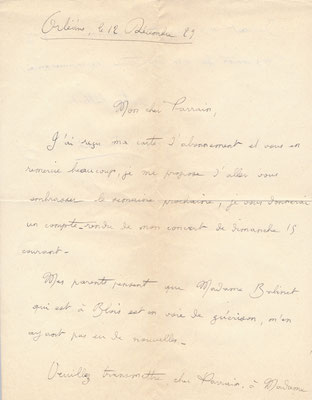 Orléans, le 12 Décembre
Mon cher Parrain,
J'ai reçu ma carte d'abonnement et vous en
remercie beaucoup, je me propose d'aller vous
embrasser la semaine prochaine, je vous donnerai
un compte-rendu de mon concert de dimanche 15
courant.
Mes parents pensent que Madame
qui est à Blois est en voie de guérison, n'en
ayant pas eu de nouvelles.
Veuillez transmettre cher Parrain, à Madame